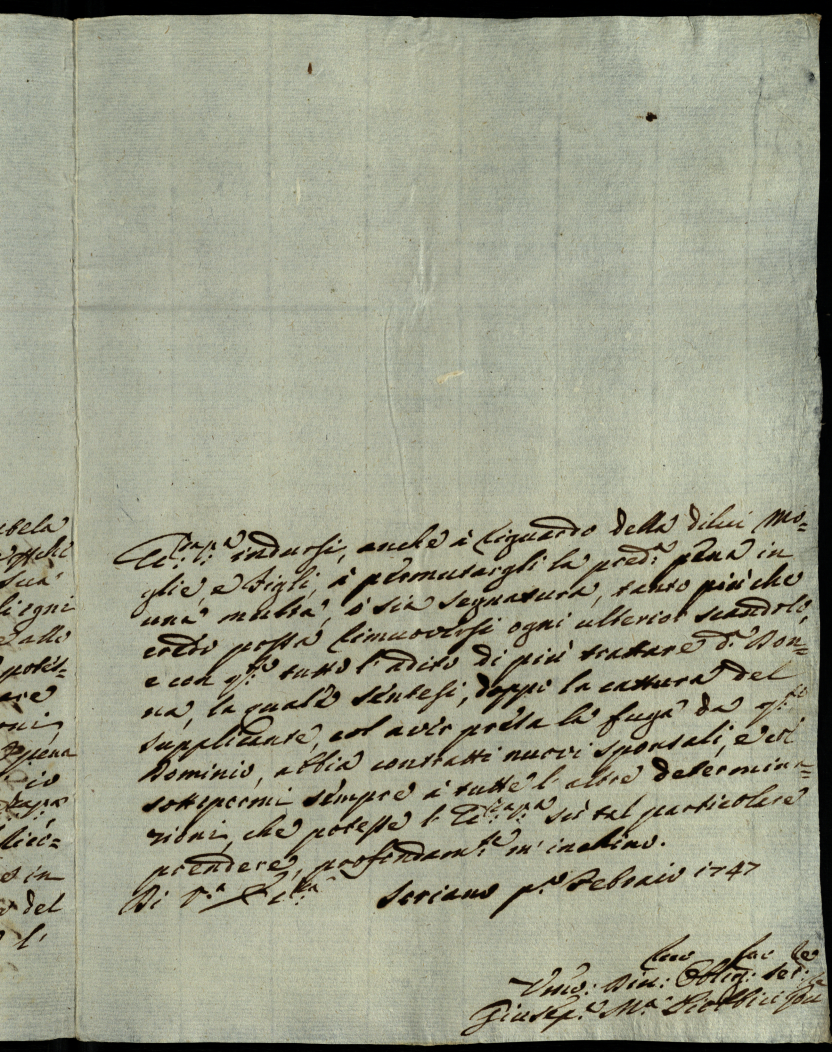 indursi, anche à riguardo della dilui Mo=
glie, e Figli, à permutargli la pred.ª pena in
una multa, ò sia segnatura, tanto più che
credo possa rimuoversi ogni ulterior scandolo,
e con q.to tutto l'adito di più trattare d.ª Don=
na, la quale sintesi, doppo la cattura del
supplicante, col aver presa la fuga da q.sto
Dominio, abbia contratti nuovi sponsali, e col
sottopormi sempre à tutte l'altre determina=
zioni, che potesse l' sù tal particolare
prendere, profondam.te m'inchino.
Di V.ª Soriano p.º Febraio 1747
Umo: Div: Oblig: Ser:
Giusep.e M.ª
ubela
Sua
ogni
del